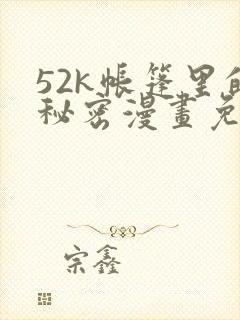 52k帐篷里的
秘密漫畫免
宗鑫